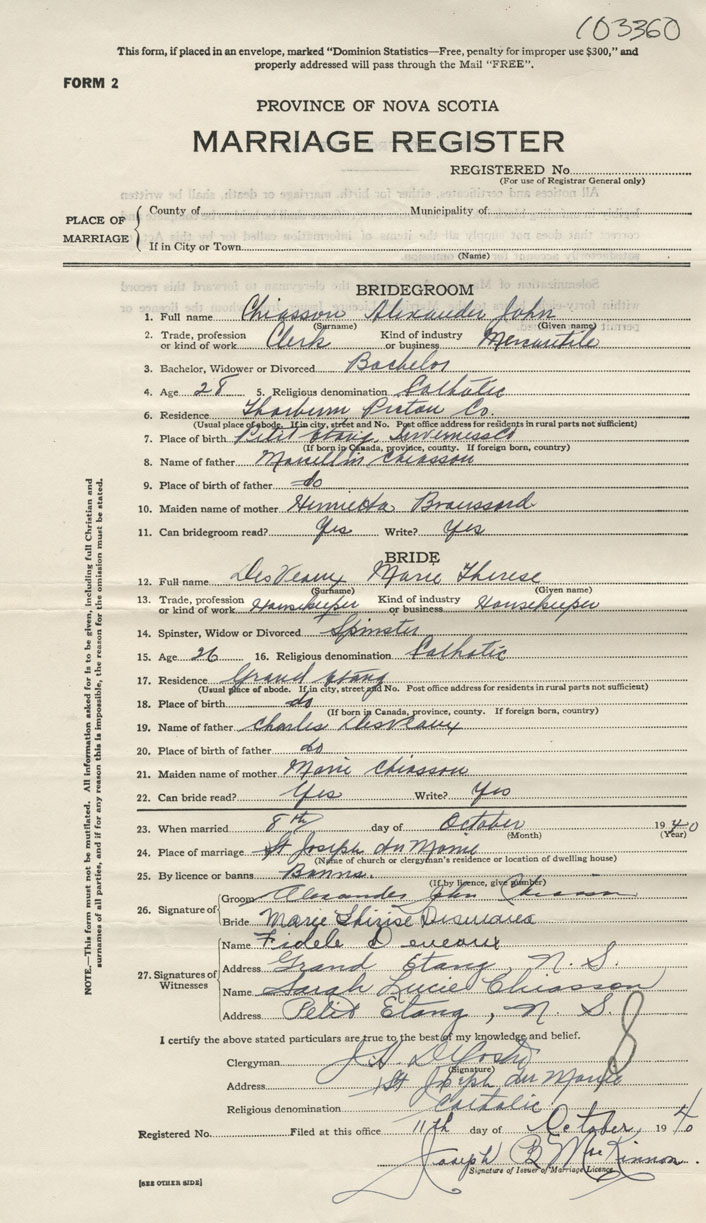 103360
This form, if placed in an envelope, marked "Dominion Statistics—Free, penalty for improper use $300," and
properly addressed will pass through the Mail "FREE".
FORM 2
PROVINCE OF NOVA SCOTIA
MARRIAGE REGISTER
REGISTERED No.
(For use of Registrar General only)
PLACE OF MARRIAGE
County of Municipality of
If in City or Town
(Name)
BRIDEGROOM
1. Full name Chiasson Alexander John
(Surname) (Given name)
2. Trade, profession or kind of work Clerk Kind of industry or business Mercantile
3. Bachelor, Widower or Divorced Bachelor
4. Age 28 5. Religious denomination Catholic
6. Residence Thorburn Pictou Co.
(Usual place of abode. If in city, street and No. Post office address for residents in rural parts not sufficient)
7. Place of birth Petit Etang Inverness Co
(If born in Canada, province, county. If foreign born, country)
8. Name of father Marcellin Chiasson
9. Place of birth of father do
10. Maiden name of mother Henrietta Broussard
11. Can bridegroom read? Yes Write? Yes
BRIDE
12. Full name DesVeaux Marie Therese
(Surname) (Given name)
13. Trade, profession or kind of work Housekeeper Kind of industry or business Housekeeper
14. Spinster, Widow or Divorced Spinster
15. Age 26 16. Religious denomination Catholic
17. Residence Grand Etang
(Usual place of abode. If in city, street and No. Post office address for residents in rural parts not sufficient)
18. Place of birth do
(If born in Canada, province, county. If foreign born, country)
19. Name of father Charles DesVeaux
20. Place of birth of father do
21. Maiden name of mother Marie Chiasson
22. Can bride read? Yes Write? Yes
23. When married 8th day of October 1940
(Month) (Year)
24. Place of marriage St Joseph du Moine
(Name of church or clergyman's residence or location of dwelling house)
25. By licence or banns Banns.
(If by licence, give number)
26. Signature of
Groom Alexander John Chiasson
Bride Marie
27. Signatures of Witnesses
Name Fidele Deveaux
Address Grand Etang, N. S.
Name Sarah Lucie Chiasson
Address Petit Etang, N. S.
I certify the above stated particulars are true to the best of my knowledge and belief.
Clergyman
(Signature)
Address St Joseph du Moine
Religious denomination Catholic
Registered No. Filed at this office 11th day of October, 1940
Joseph B MacKinnon.
Signature of Issuer of Marriage Licence
[SEE OTHER SIDE]
NOTE.—This form must not be mutilated. All information asked for is to be given, including full Christian and
surnames of all parties, and if for any reason this is impossible, the reason for the omission must be stated.